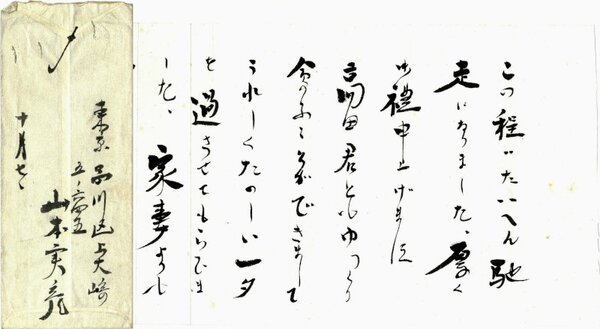 この程はたいへん馳
走になりました、厚く
御禮申上げます
田君ともゆっくり
ことができまして
うれしくたのしい一夕
を過させてもらひま
した、家妻よりも
〆
東京品川区上大崎
五ノ六
山本実彦
十月七日